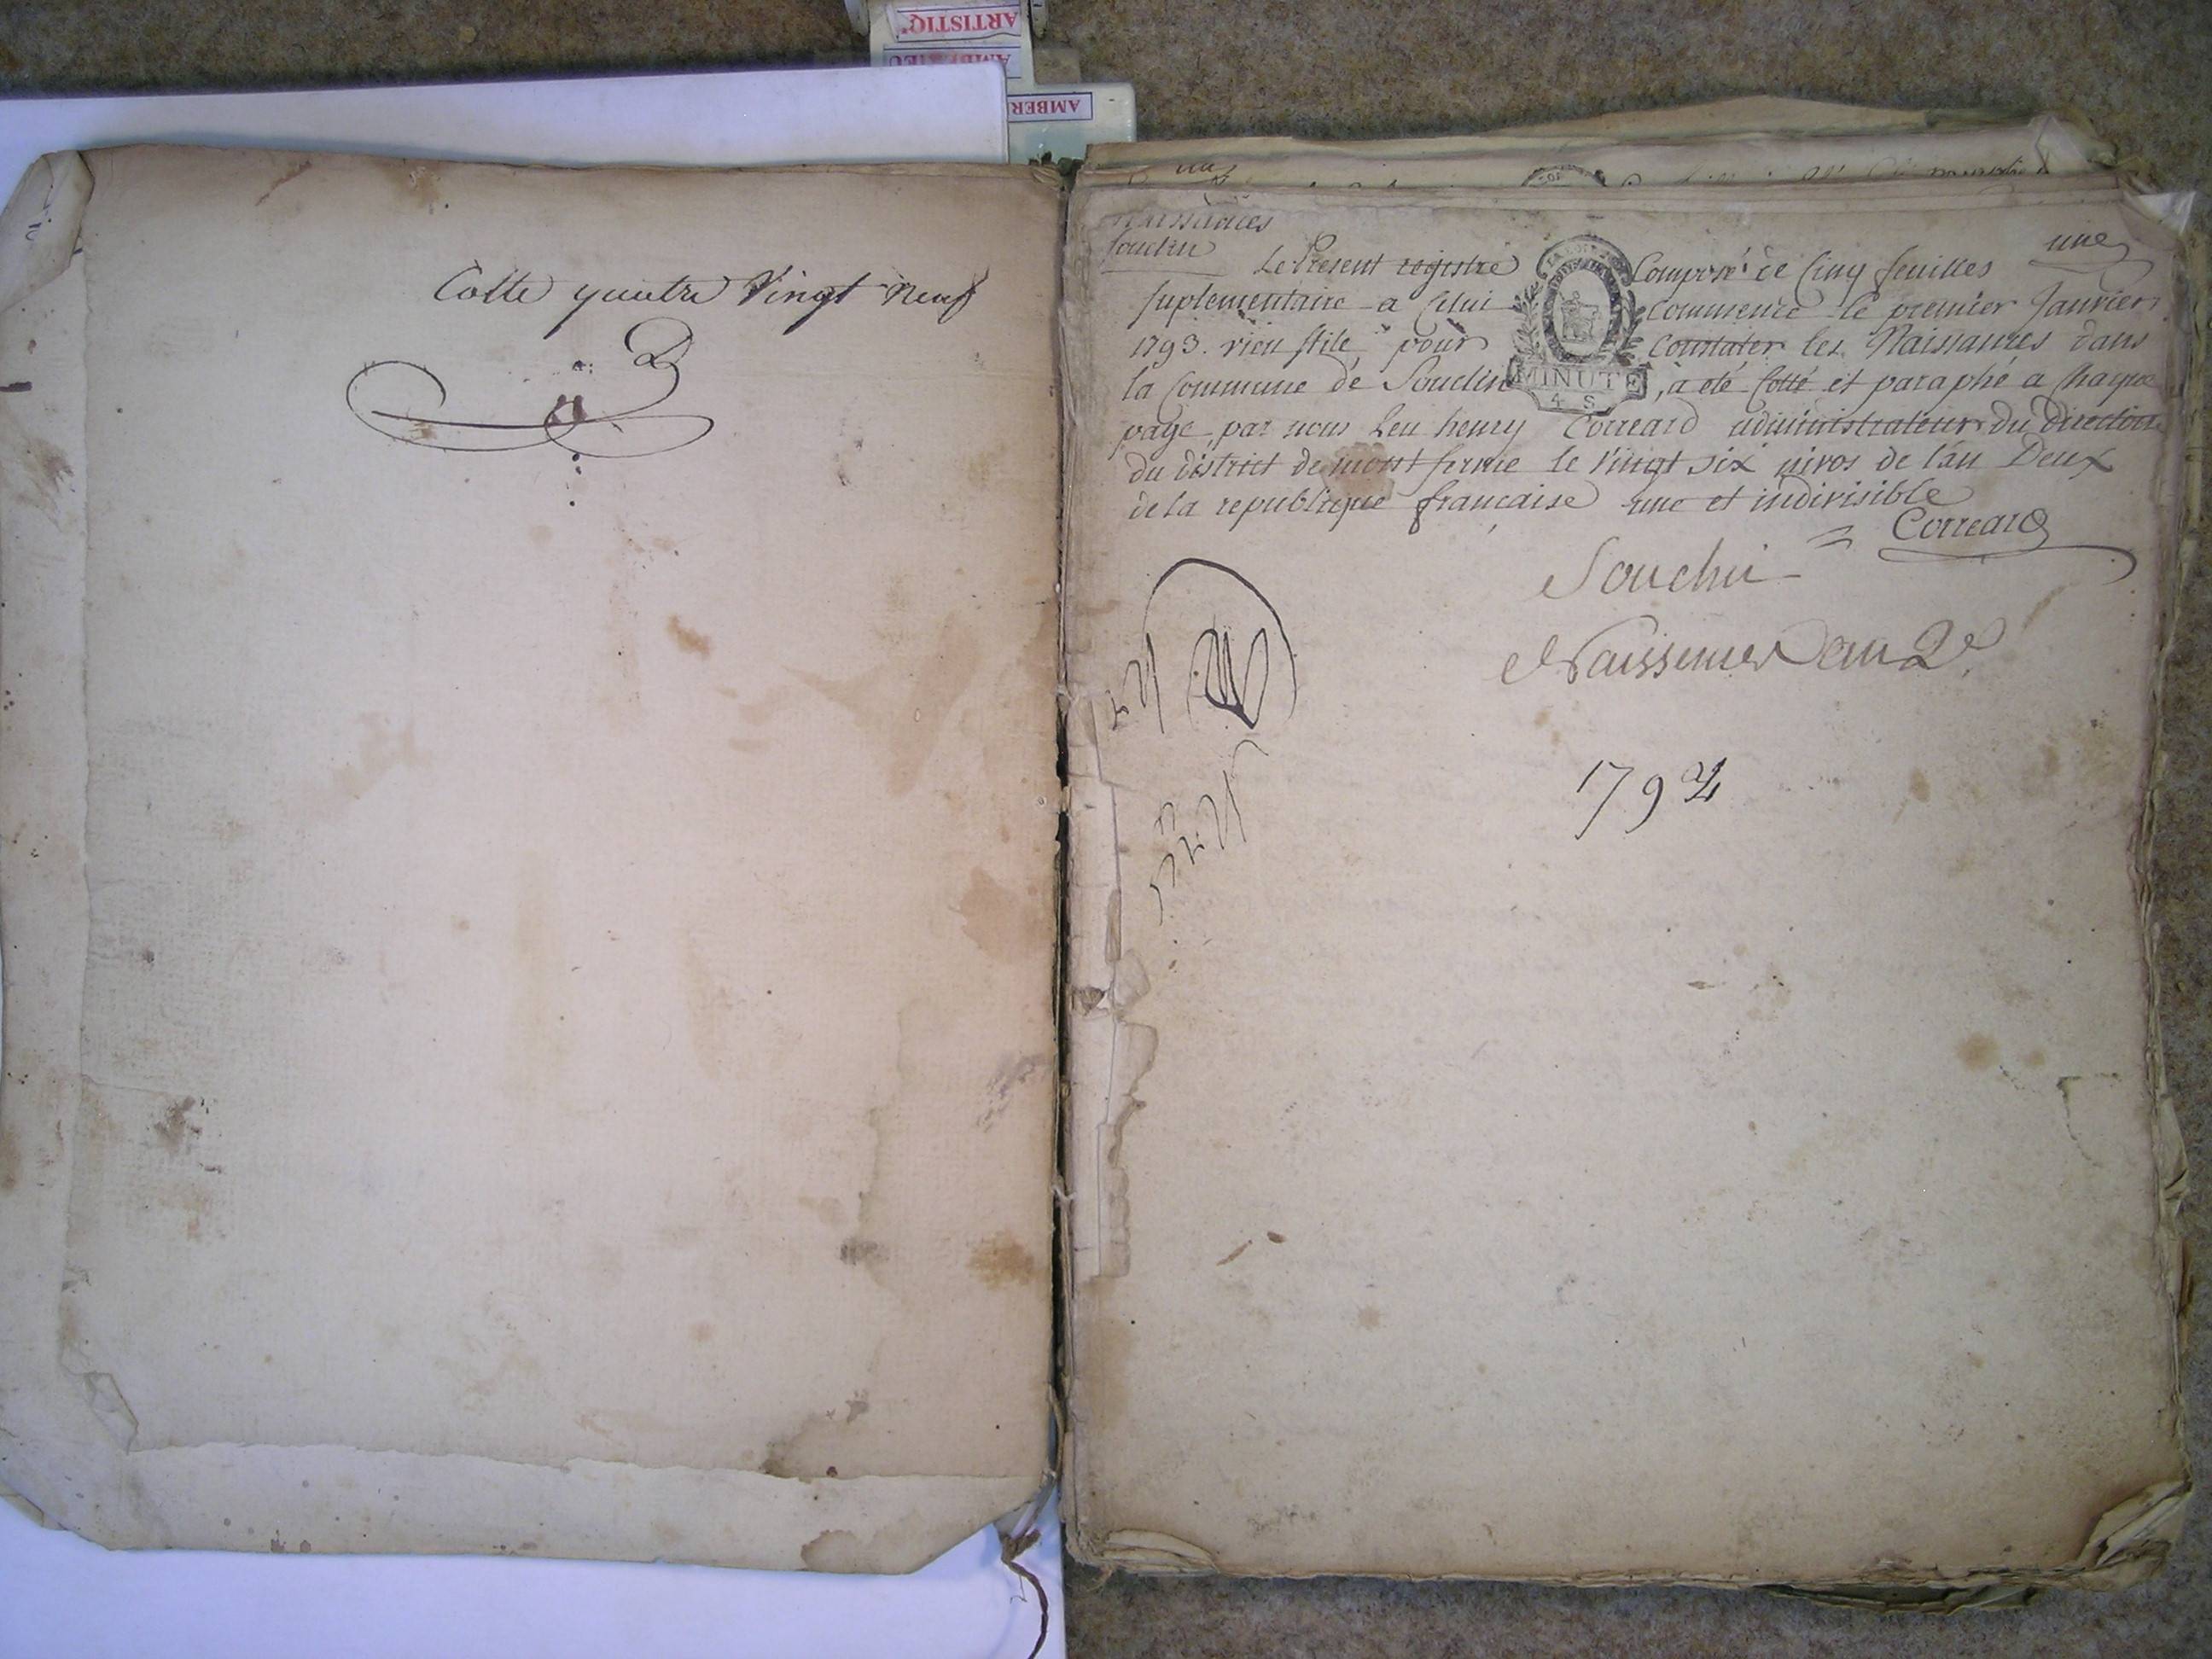 ARTISTIQ'
AMBERIEU
AMBER
Cotte quatre Vingt neuf
Naissances
Souclin
une
Le Present registre Composé de Cinq feuilles
suplementaire a Celui Commencé le premier Janvier
1793. vieu stile, pour Constater les Naissances dans
la Commune de Souclin, a eté Cotté et paraphé a Chaque
page, par nous Leu henry Correard administrateur du directoire
du district de mont ferme le vingt six nivos de l'an Deux
de la republique francaise une et indivisible
Correard
MINUTE
4 S
Souclin
Naissences an 2e
1794